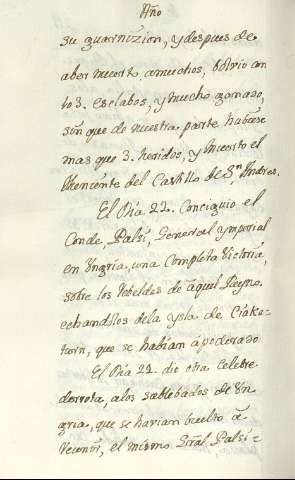 Año
su guarnizion, y despues de
aber muerto, amuchos, bolvio con
103. esclabos, y mucho ganado,
sin que de nuestra parte habiese
mas que 3. heridos, y muerto el
theniente del Castillo de Sn. Andres.
El Dia 22. Consiguio el
Conde, Palfi, General ymperial
en Vngria, una completa Victoria,
sobre los Rebeldes de aquel Reyno,
echandolos dela ysla de Ciako-
turn, que se habian apoderado
El Dia 22 dio otra celebre
derrota, alos sublebados de Vn-
gria, que se havian buelto â
el mismo Gral Palfi=